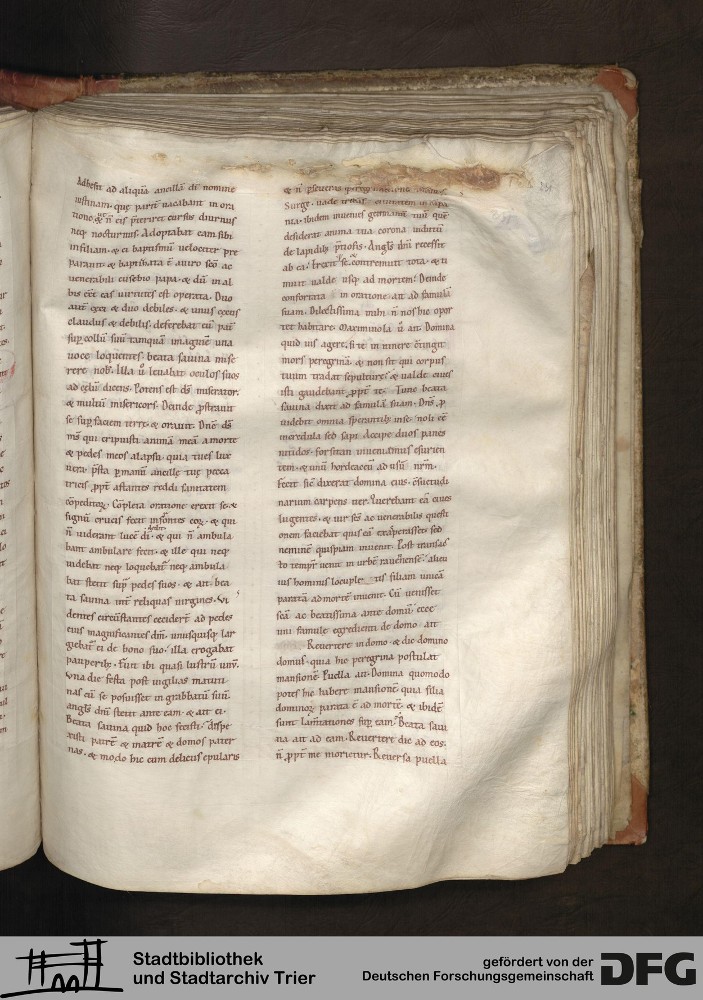 Adhesit ad aliquā ancillā dī nomine
iustinam. quę parit̄ vacabant in ora
tione. & n̄ eis p̄teriret cursus diurnus
neq; nocturnus. Adoptabat eam sibi
in filiam. & ei baptismū velociter pre
parauit. & baptizata ē a uiro scō ac
venerabili eusebio papa. & dū in al
bis eēt eas uirtutes est operata. Duo
aut̄ ceci & duo debiles. & unus cecus
claudus & debilis. deferebat eū pat̄
sup̄ collū suū tamquā imaginē una
uoce loquentes. beata sauina mise
rere nob̄. Illa ū leuabat oculos suos
ad cęlū dicens. Potens est dn̄s miserator.
& multū misericors. Deinde p̄strauit
se sup̄ faciem terrę & orauit. Dn̄e ds̄
ms̄ qui eripuisti animā meā a morte
& pedes meos a lapsu. quia tu es lux
uera. p̄sta p̄ manū ancillę tuę pecca
tricis. p̄pt̄ astantes reddi sanitatem
Cōpleta oratione erexit se. &
signū crucis fecit eoȝ. & qui
n̄ uiderant lucē dī. & qui n̄ ambula
bant ambulare fecit. & ille qui neq;
uidebat neq; loquebat̄ neq; ambula
bat stetit sup̄ pedes suos. & ait bea
ta sauina int̄ reliquas uirgines. Vi
dentes circūstantes ceciderт ad pedes
eius magnificantes dm̄. unusquisq; lar
giebat̄ ei de bono suo. illa erogabat
pauperib;. Fuit ibi quasi lustrū unū.
Vna die festa post uigilias matuti
nas cū se posuisset in grabbatū suū.
angls̄ dn̄i stetit ante eam. & ait ei.
Beata sauina quid hoc fecisti. dispe
xisti patrē & matrē & domos pater
nas. & modo hic cum deliciis epularis
& n̄
Surge. uade
nta. ibidem inuenies germanū tuū quē
desiderat anima tua corona inditū
de lapidib; p̄tiosis. Angls̄ dn̄i recessit
ab ea. Erexit se. contremuit tota. & ti
muit ualde usq; ad mortem. Deinde
confortata in oratione. ait ad famulā
suam. Dilectissima mihi n̄ nos hic opor
tet habitare. Maximinola ū ait. Domina
quid uis agere. si te in itinere ctingit
mors peregrina. & non sit qui corpus
tuum tradat sepulturę. & ualde ciues
isti gaudebant p̄pt̄ te. Tunc beata
sauina dixit ad famulā suam. Dn̄s p̄
uidebit omnia sperantib; in se. noli eē
incredula sed sapi. Accipe duos panes
nitidos. forsitan inueniamus esurien
tem. & unū hordeaceū ad usū nrm̄.
Fecit sic dixerat domina eius. ōsuetudi
narium carpens iter. Querebant eā ciues
lugentes. & uir scs̄ ac uenerabilis questi
onem faciebat quis eā exasperasset. sed
neminē quispiam inuenit. Post transac
to tempr̄ uenit in urbē rauennensē. alicu
ius hominis locuple tis filiam unicā
paratā ad mortē inuenit. Cū uenisset
scā ac beatissima ante domū. ecce
uni famulę egredienti de domo ait
Reuertere in domo. & dic domino
domus. quia hic peregrina postulat
mansionē. Puella ait. Domina quomodo
potes hic habere mansionē. quia filia
dominoȝ parata ē ad mortē. & ibidē
sunt lamtationes sup̄ eam. Beata saui
na ait ad eam. Reuertere dic ad eos.
n̄ p̄pt̄ me morietur. Reuersa puella
Stadtbibliothek
und Stadtarchiv Trier
gefördert von der
Deutschen Forschungsgemeinschaft
DFG